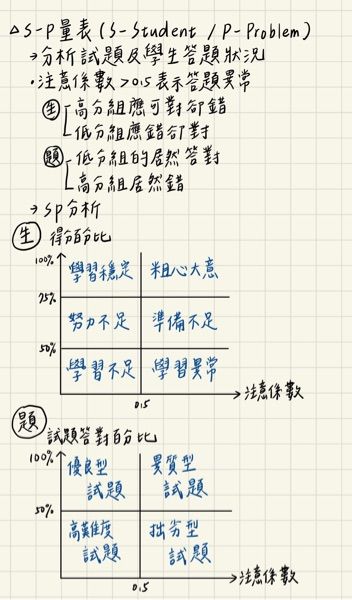 △S-P量表(S-Student / P-Problem)
→分析試題及學生答題狀況
•注意係數>0.5表示答題異常
生 高分組應可對卻錯
低分組應錯卻對
題 低分組的居然答對
高分組居然錯
→SP分析
生 得分百分比
100% 學習穩定 粗心大意
75%
努力不足 準備不足
50%
學習不足 學習異常
0.5 注意係數
題 試題答對百分比
100% 優良型試題 異質型試題
50%
高難度試題 拙劣型試題
0.5 注意係數